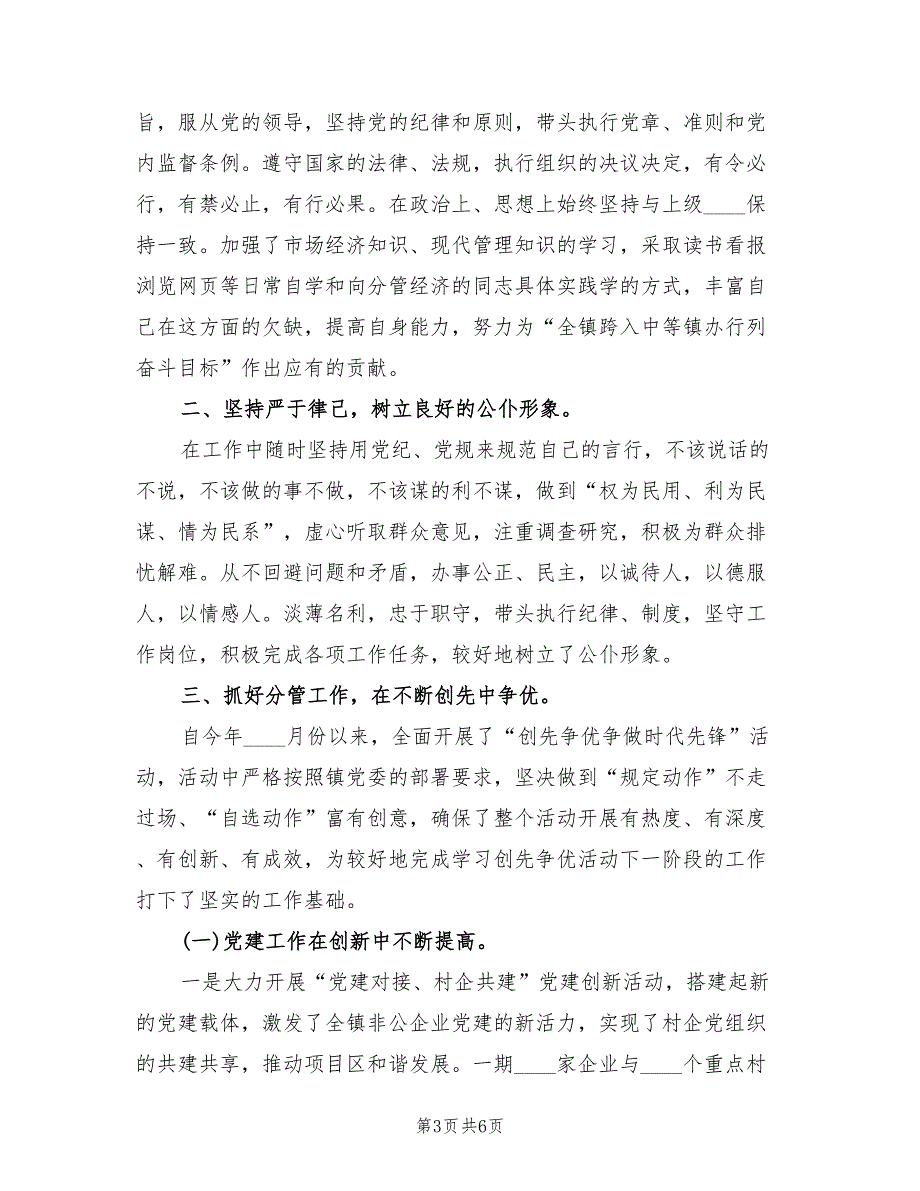 旨，服从党的领导，坚持党的纪律和原则，带头执行党章、准则和党
内监督条例。遵守国家的法律、法规，执行组织的决议决定，有令必
行，有禁必止，有行必果。在政治上、思想上始终坚持与上级____保
持一致。加强了市场经济知识、现代管理知识的学习，采取读书看报
浏览网页等日常自学和向分管经济的同志具体实践学的方式，丰富自
己在这方面的欠缺，提高自身能力，努力为“全镇跨入中等镇办行列
奋斗目标”作出应有的贡献。
二、坚持严于律己，树立良好的公仆形象。
在工作中随时坚持用党纪、党规来规范自己的言行，不该说话的
不说，不该做的事不做，不该谋的利不谋，做到“权为民用、利为民
谋、情为民系”，虚心听取群众意见，注重调查研究，积极为群众排
忧解难。从不回避问题和矛盾，办事公正、民主，以诚待人，以德服
人，以情感人。淡薄名利，忠于职守，带头执行纪律、制度，坚守工
作岗位，积极完成各项工作任务，较好地树立了公仆形象。
三、抓好分管工作，在不断创先中争优。
自今年____月份以来，全面开展了“创先争优争做时代先锋”活
动，活动中严格按照镇党委的部署要求，坚决做到“规定动作”不走
过场、“自选动作”富有创意，确保了整个活动开展有热度、有深度
、有创新、有成效，为较好地完成学习创先争优活动下一阶段的工作
打下了坚实的工作基础。
(一)党建工作在创新中不断提高。
一是大力开展“党建对接、村企共建”党建创新活动，搭建起新
的党建载体，激发了全镇非公企业党建的新活力，实现了村企党组织
的共建共享，推动项目区和谐发展。一期____家企业与____个重点村
第3页共6页